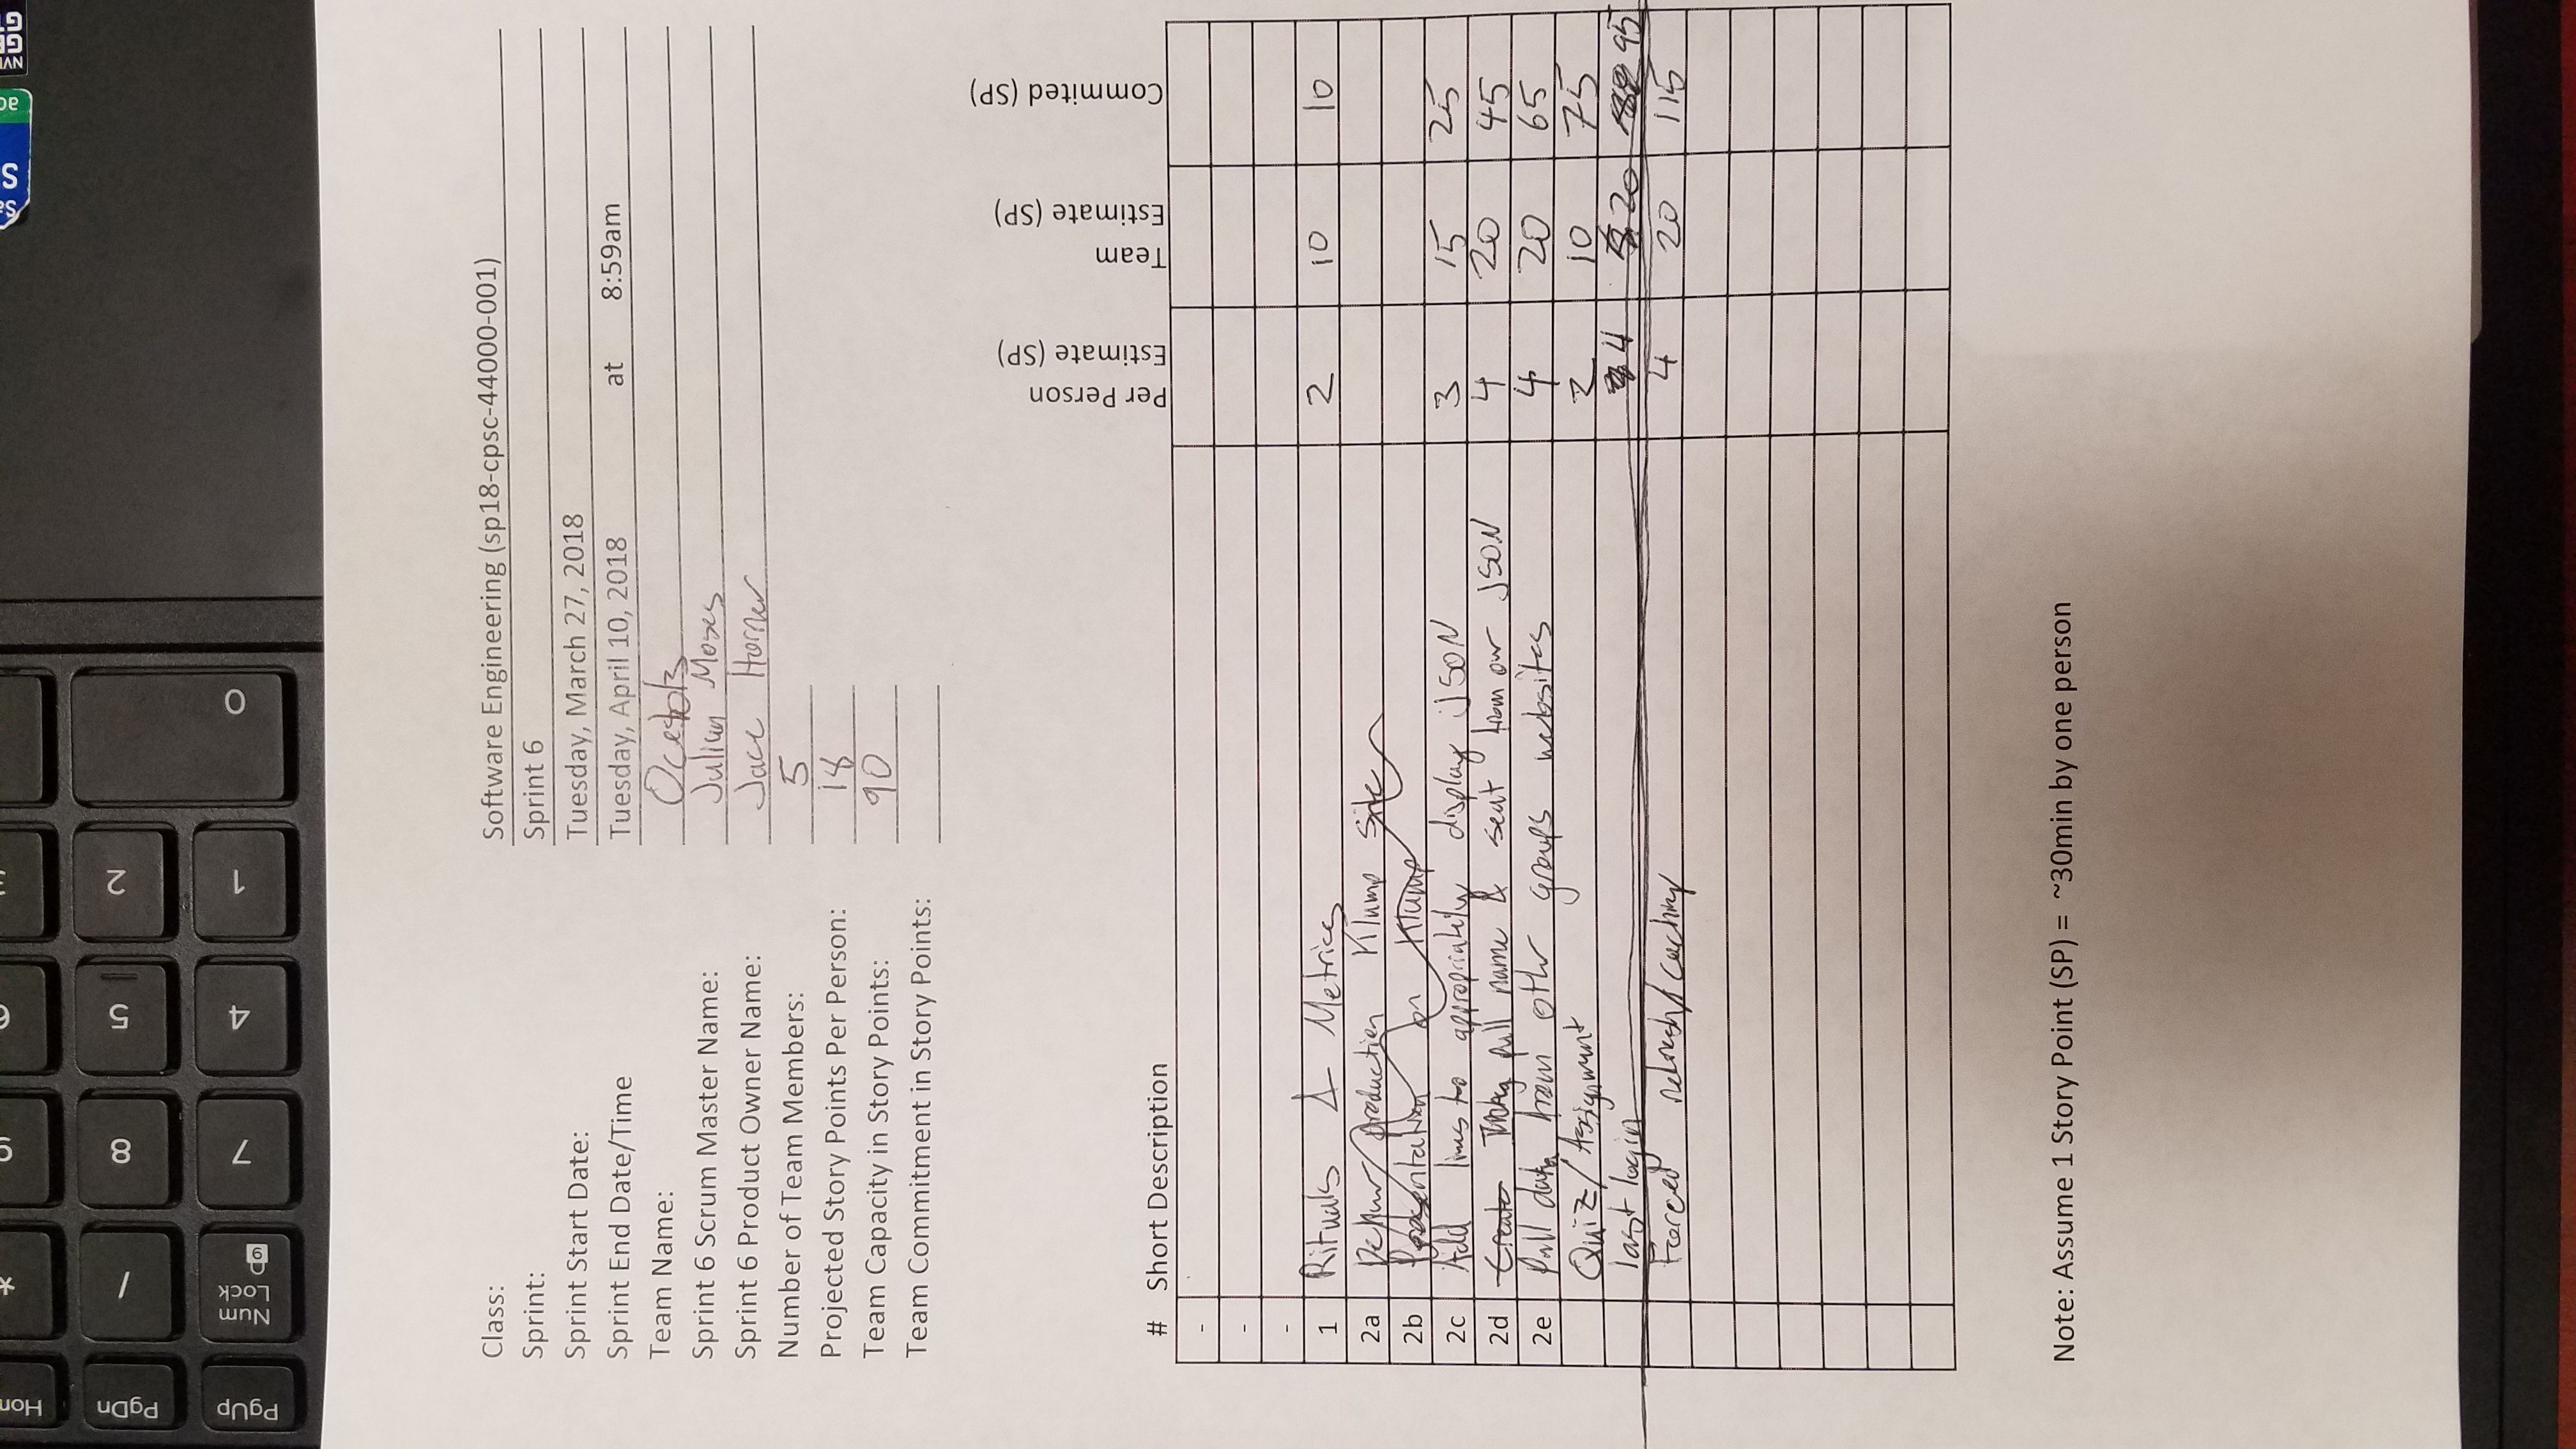 Hom * 9 6 3
PgDn / 8 5 2
PgUp Num Lock 7 4 1 0
Class: Software Engineering (sp18-cpsc-44000-001)
Sprint: Sprint 6
Sprint Start Date: Tuesday, March 27, 2018
Sprint End Date/Time Tuesday, April 10, 2018 at 8:59am
Team Name: Ocelots
Sprint 6 Scrum Master Name: Julian Moses
Sprint 6 Product Owner Name: Jace Horner
Number of Team Members: 5
Projected Story Points Per Person: 18
Team Capacity in Story Points: 90
Team Commitment in Story Points:
# Short Description Per Person Estimate (SP) Team Estimate (SP) Commited (SP)
-
-
-
1 Rituals & Metrics 2 10 10
2a production Klump Site
2b Presentation on Klump
2c Add lines to appropriately display JSON 3 15 25
2d Create pull name & seat from our JSON 4 20 45
2e Pull data from other groups websites 4 20 65
Quiz/Assignment 2 10 75
last login 4 20 95
Forced refresh/caching 4 20 115
Note: Assume 1 Story Point (SP) = ~30min by one person